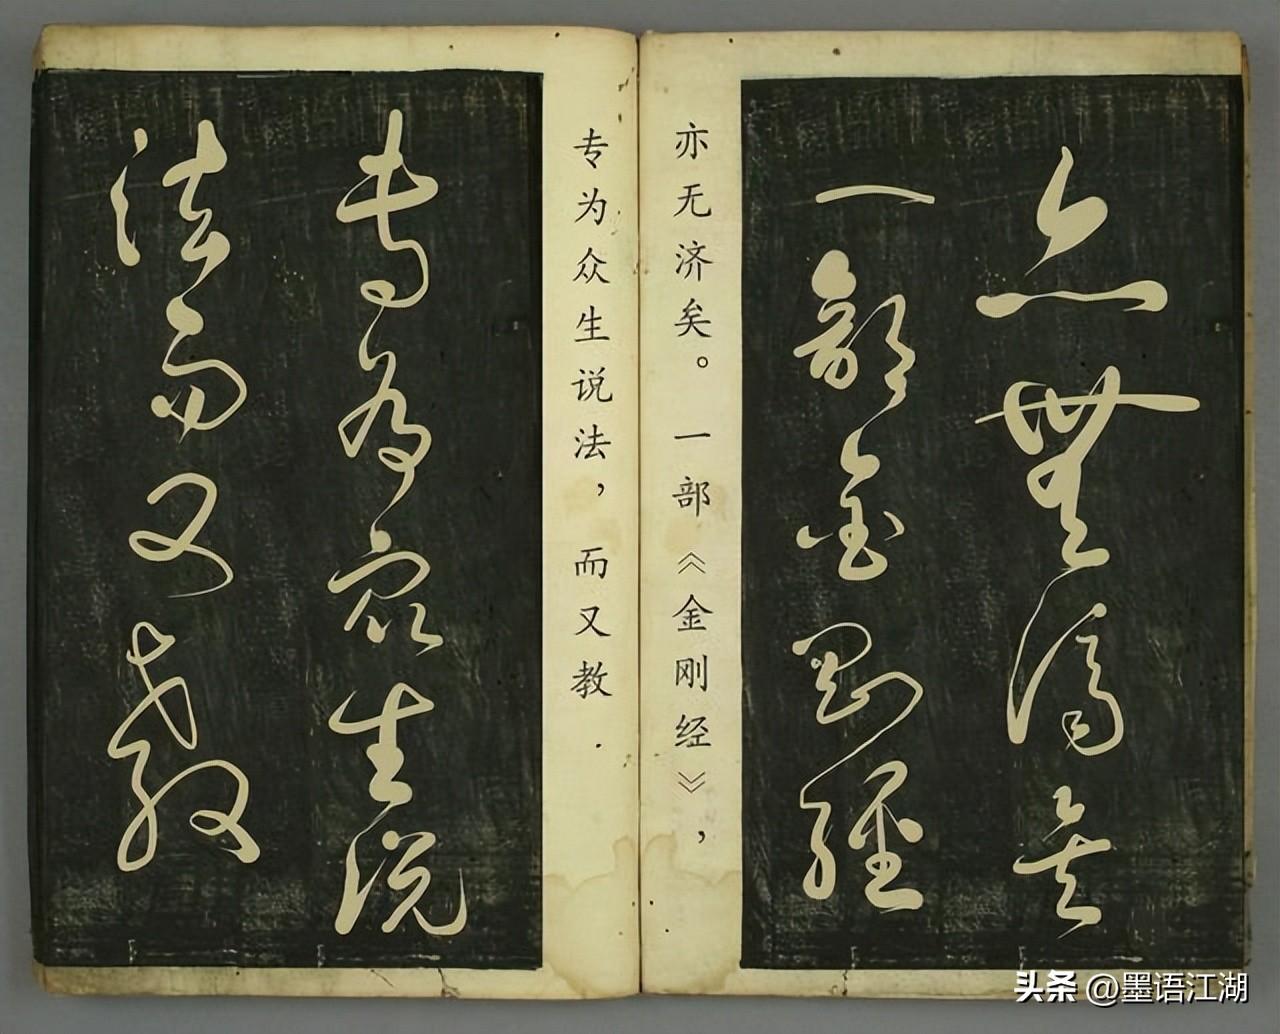 亦無濟矣
一部金剛經
亦无济矣。一部《金刚经》，
专为众生说法，而又教
專為眾生說
法而又教
头条 @墨语江湖